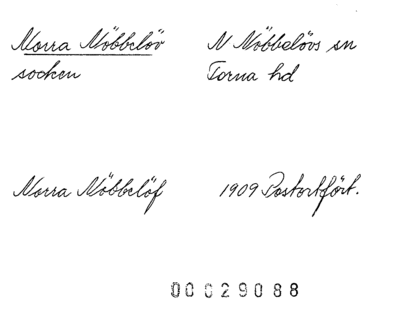 Norra Nöbbelöv N Nöbbelövs sn
socken Torna hd
Norra Nöbbelöf 1909 Postortfört.
00029088